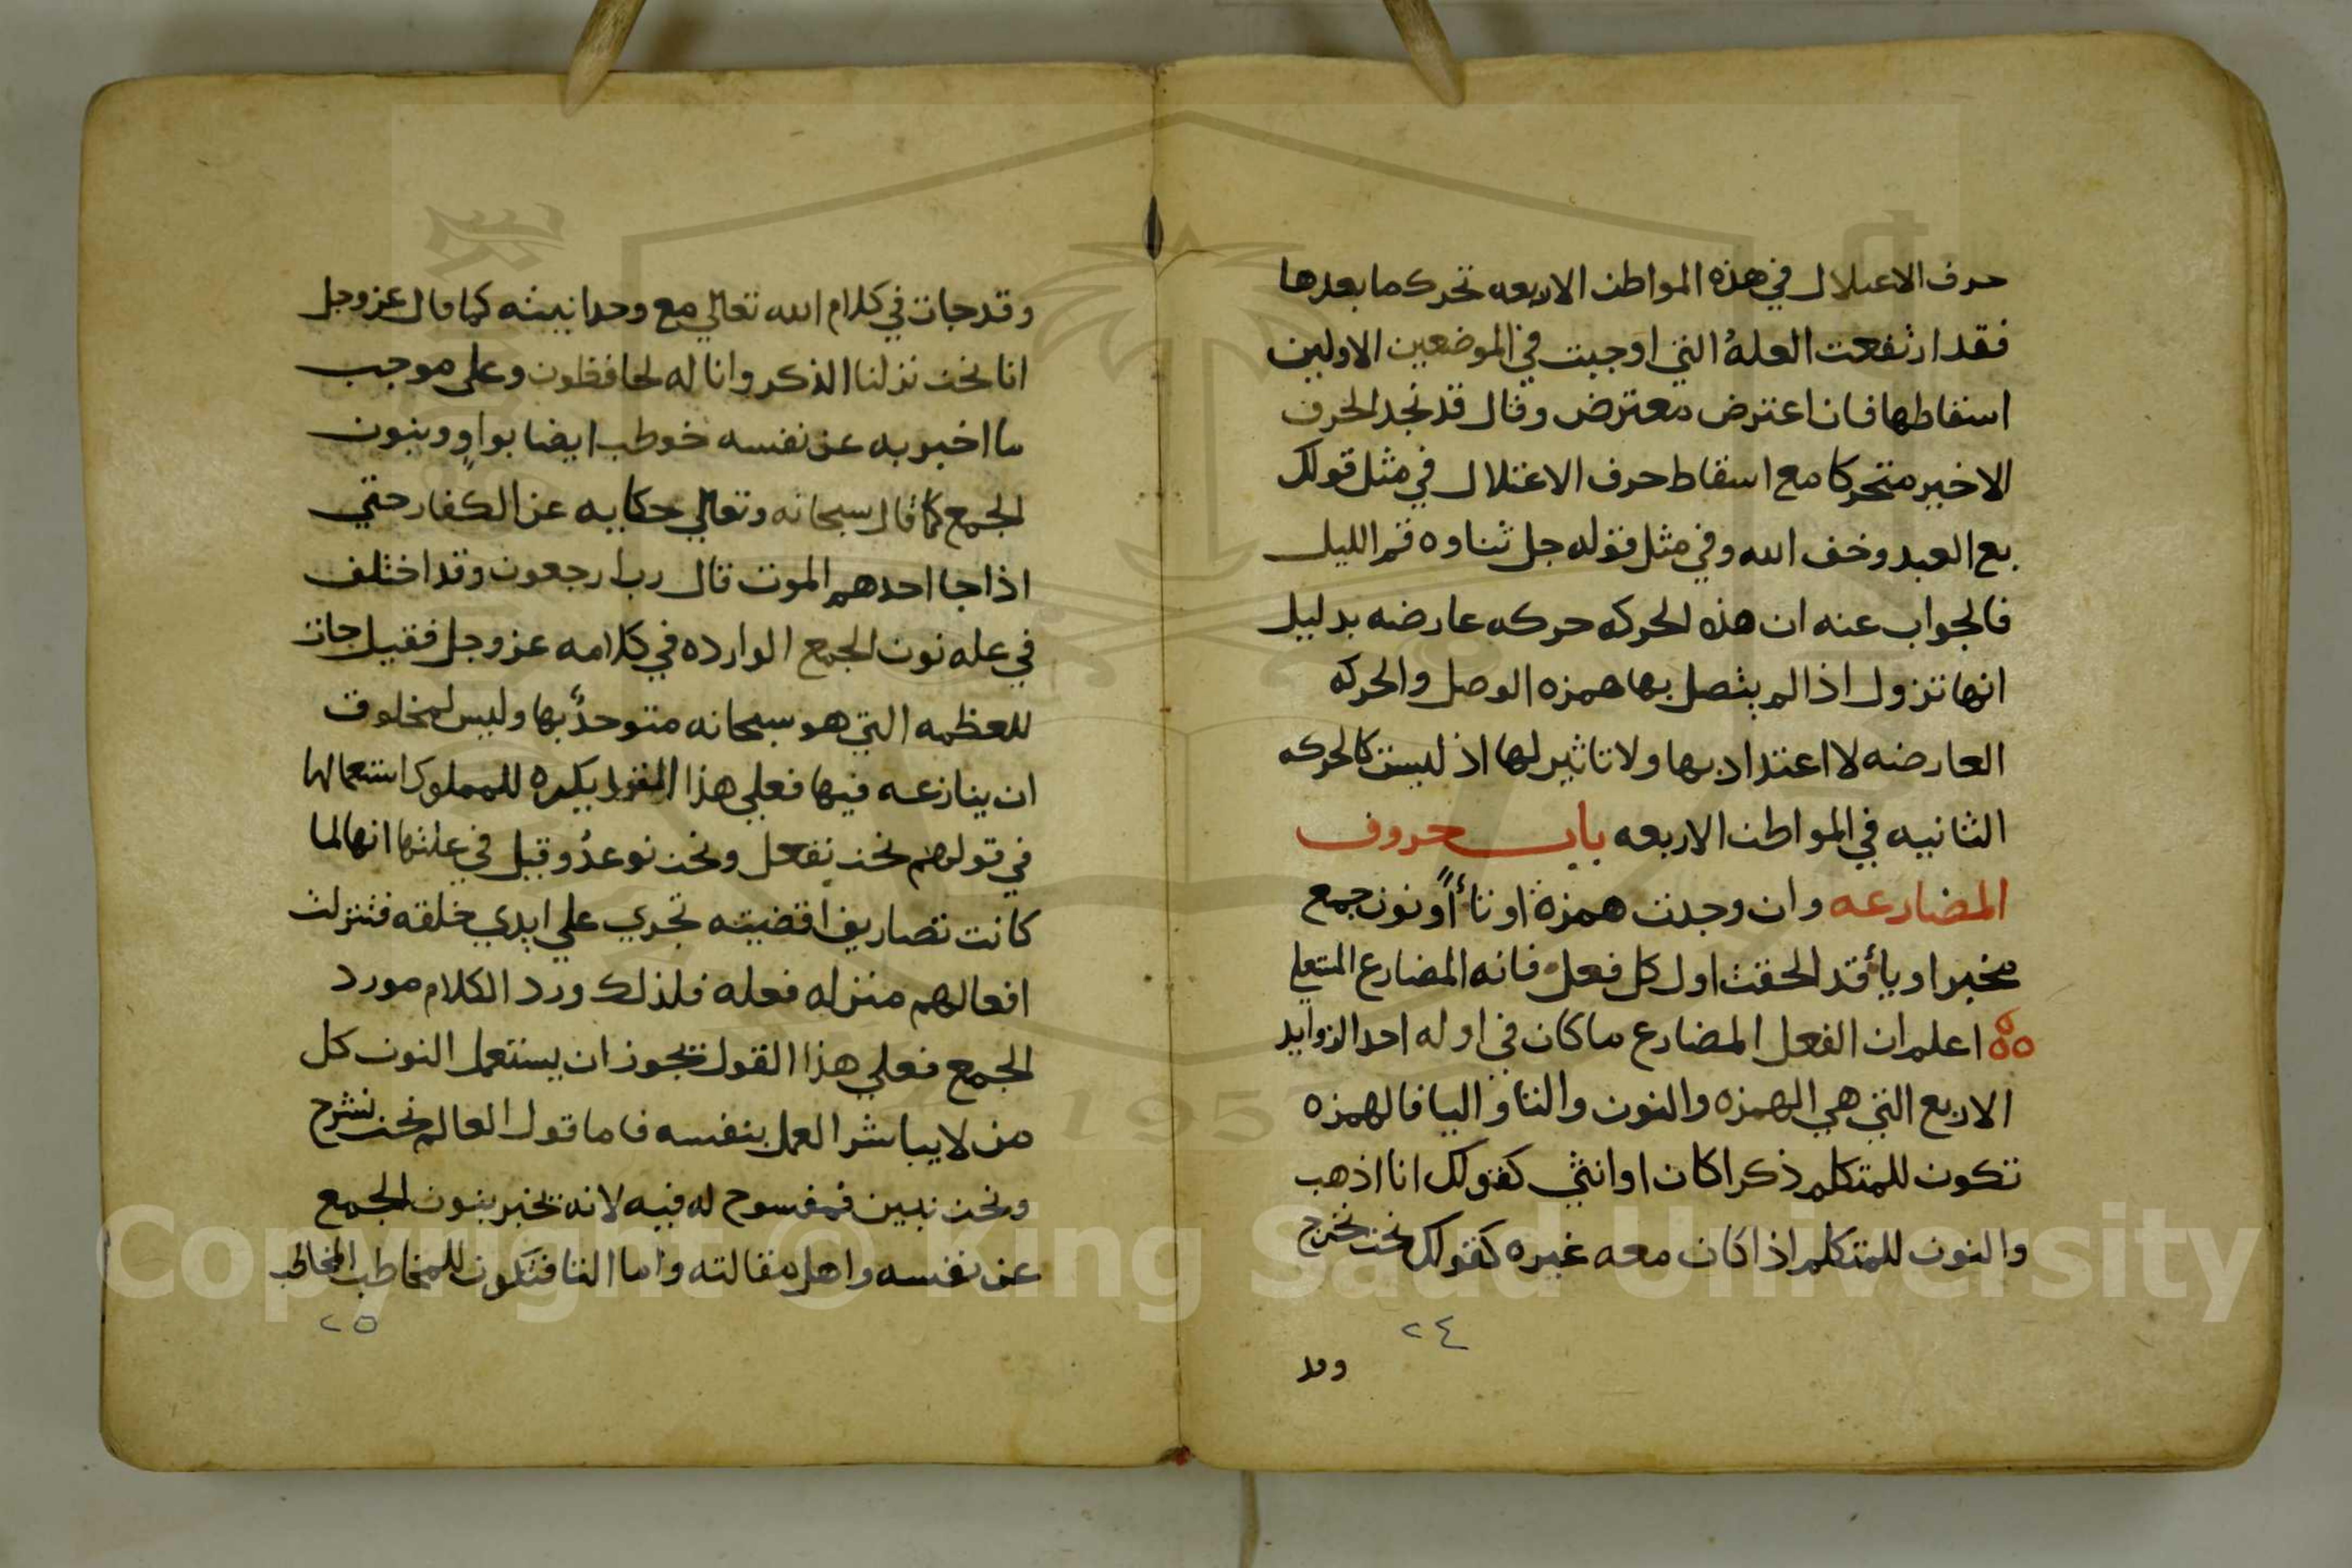 حرف الاعتلال في هذه المواطن الاربعه تحرك ما بعدها
فقد ارتفعت العلهُ التي اوجبت في الموضعين الاولين
اسقاطها فان اعترض معترض وقال قد نجد الحرف
الاخير متحركا مع اسقاط حرف الاعتلال في مثل قولك
بع العبد وخف الله وفي مثل قوله جل ثناوه قم الليل
فالجواب عنه ان هذه الحركه حركه عارضه بدليل
انها تزول اذا لم يتصل بها همزه الوصل والحركه
العارضه لا اعتداد بها ولا تاثير لها اذ ليست كالحركه
الثانيه في المواطن الاربعه باب حروف
المضارعه وان وجدت همزة او تاءً او نون جمع
مخبر او ياء قد الحقت اول كل فعل فانه المضارع المستعلي
اعلم ان الفعل المضارع ما كان في اوله احد الزوايد
الاربع التي هي الهمزه والنون والتا واليا فالهمزه
تكون للمتكلم ذكرا كان او انثي كقولك انا اذهب
والنون للمتكلم اذا كان معه غيره كقولك نحن نخرج
٢٤
وقد
وقد جات في كلام الله تعالي مع وحدانيته كما قال عز وجل
انا نحن نزلنا الذكر وانا له لحافظون وعلي موجب
ما اخبر به عن نفسه خوطب ايضا بواوٍ وبنون
الجمع كما قال سبحانه وتعالي حكايه عن الكفار حتي
اذا جا احدهم الموت قال رب ارجعون وقد اختلف
في عله نون الجمع الوارده في كلامه عز وجل فقيل جات
للعظمه التي هو سبحانه متوحدٌ بها وليس لمخلوق
ان ينازعه فيها فعلي هذا القول يكره للمملوك استعمالها
في قولهم نحن نفعل ونحن نوعدُ وقيل في علتها انها لما
كانت تصاريف اقضيته تجري علي ايدي خلقه فتنزلت
افعالهم منزله فعله فلذلك ورد الكلام مورد
الجمع فعلي هذا القول يجوز ان يستعمل النون كل
من لا يباشر العمل بنفسه فاما قول العالم نحن نشرح
ونحن نبين فمفسوح له فيه لانه يخبر بنون الجمع
عن نفسه واهل مقالته واما التا فتكون للمخاطب المخاطب
٢٥
Copyright © King Saud University
195